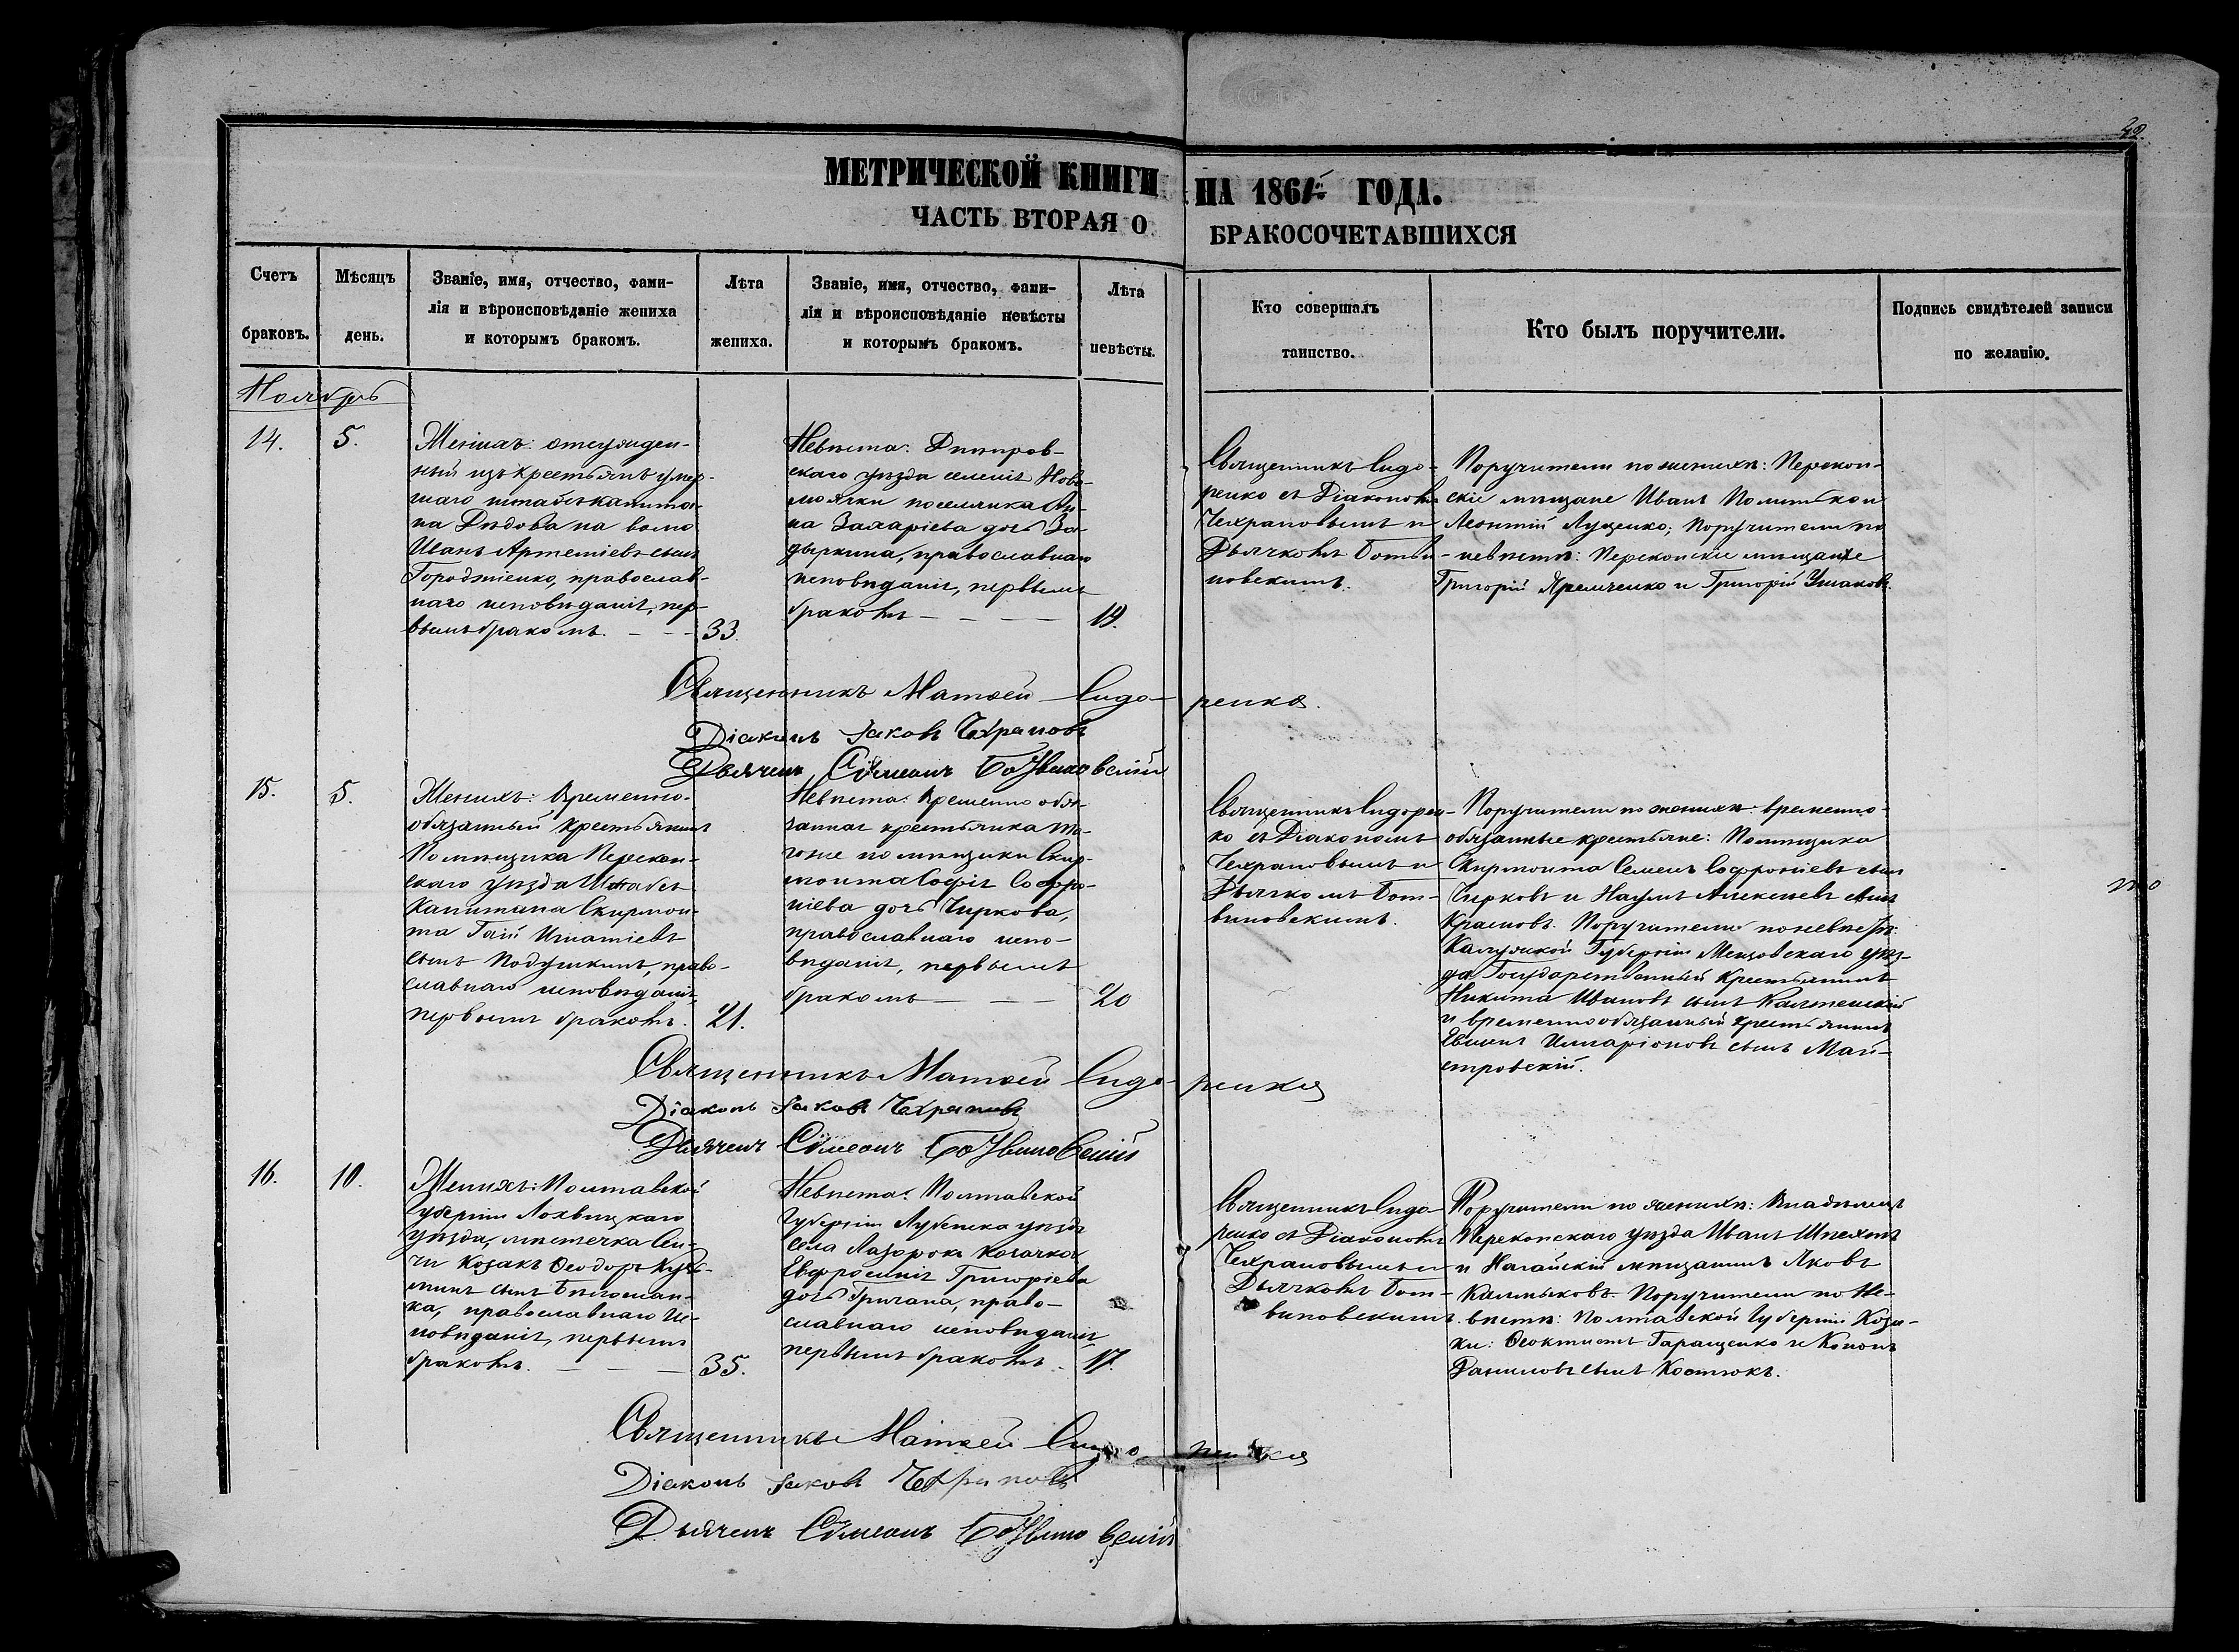 42.
МЕТРИЧЕСКОЙ КНИГИ НА 1861 ГОДА.
ЧАСТЬ ВТОРАЯ О БРАКОСОЧЕТАВШИХСЯ
Счетъ браковъ.
Мѣсяцъ день.
Званіе, имя, отчество, фами-
лія и вѣроисповѣданіе жениха
и которымъ бракомъ.
Лѣта жениха.
Званіе, имя, отчество, фами-
лія и вѣроисповѣданіе невѣсты
и которымъ бракомъ.
Лѣта невѣсты.
Кто совершалъ
таинство.
Кто былъ поручители.
Подпись свидѣтелей записи
по желанію.
Ноябрь
14.
5.
Женихъ: отсужден-
ный изъ крестьянъ умер-
шаго штабсъ капита-
на Дѣдова на волю
Иванъ Артеміевъ сынъ
Городніенко, православ-
наго исповѣданія, пер-
вымъ бракомъ. - - -
33.
Невѣста: Днѣпров-
скаго уѣзда селенія Ново-
маячки поселянка Ан-
на Захаріева дочь За-
дыркина, православнаго
исповѣданія, первымъ
бракомъ - - - -
19.
Священникъ Сидо-
ренко съ Діакономъ
Чехрановымъ и
Дьячкомъ Ботви-
новскимъ.
Поручители по женихѣ: Перекоп-
скіе мѣщане Иванъ
Леонтій Луценко; Поручители по
невѣстѣ: Перекопскіе мѣщане
Григорій Яремченко и Григорій Ушаковъ.
Священникъ Матѳей Сидоренко.
Діаконъ Іаковъ Чехрановъ
Дьячекъ Сѵмеонъ Ботвиновскій
15.
5.
Женихъ: Временно-
обязанный крестьянинъ
Помѣщика Перекоп-
скаго уѣзда Штабсъ
Капитана Скирмон-
та Гаій Игнатіевъ
сынъ Подушкинъ, право-
славнаго исповѣданія,
первымъ бракомъ.
21.
Невѣста: Временно обя-
занная крестьянка то-
гоже помѣщика Скир-
монта Софія Софро-
ніева дочь Чиркова,
православнаго испо-
вѣданія, первымъ
бракомъ - - -
20
Священникъ Сидорен-
ко съ Діакономъ
Чехрановымъ и
Дьячкомъ Бот-
виновскимъ.
Поручители по женихѣ временно-
обязанные крестьяне: Помѣщика
Скирмонта Семенъ Софроніевъ сынъ
Чирковъ и Наумъ Алексѣевъ сынъ
Крамовъ. Поручители по невѣстѣ:
Калужской Губерніи Мещовскаго уѣз-
да Государственный Крестьянинъ
Никита Ивановъ сынъ
и временнообязанный крестьянинъ
Евѳимъ Илларіоновъ сынъ Май-
стровскій.
Священникъ Матѳей Сидоренко
Діаконъ Іаковъ Чехрановъ
Дьячекъ Сѵмеонъ Ботвиновскій
16.
10.
Женихъ: Полтавской
Губерніи Лохвицкаго
уѣзда, мѣстечка Сен-
чи Козакъ Ѳеодоръ Кузь-
минъ сынъ
православнаго ис-
повѣданія, первымъ
бракомъ. - - -
35.
Невѣста: Полтавской
Губерніи Лубенска уѣзда
села Лазорокъ Козачка
Евфросинія Григоріева
дочь Гричана, право-
славнаго исповѣданія,
первымъ бракомъ.
17.
Священникъ Сидо-
ренко съ Діакономъ
Чехрановымъ и
Дьячкомъ Бот-
виновскимъ.
Поручители по женихѣ:
Перекопскаго уѣзда Иванъ
и Нагайскій мѣщанинъ Яковъ
Калмыковъ. Поручители по не-
вѣстѣ: Полтавской Губерніи Коза-
ки: Ѳеоктистъ Гаращенко и Кононъ
Даниловъ сынъ Костюкъ.
Священникъ Матѳей Сидоренко
Діаконъ Іаковъ Чехрановъ
Дьячекъ Сѵмеонъ Ботвиновскій